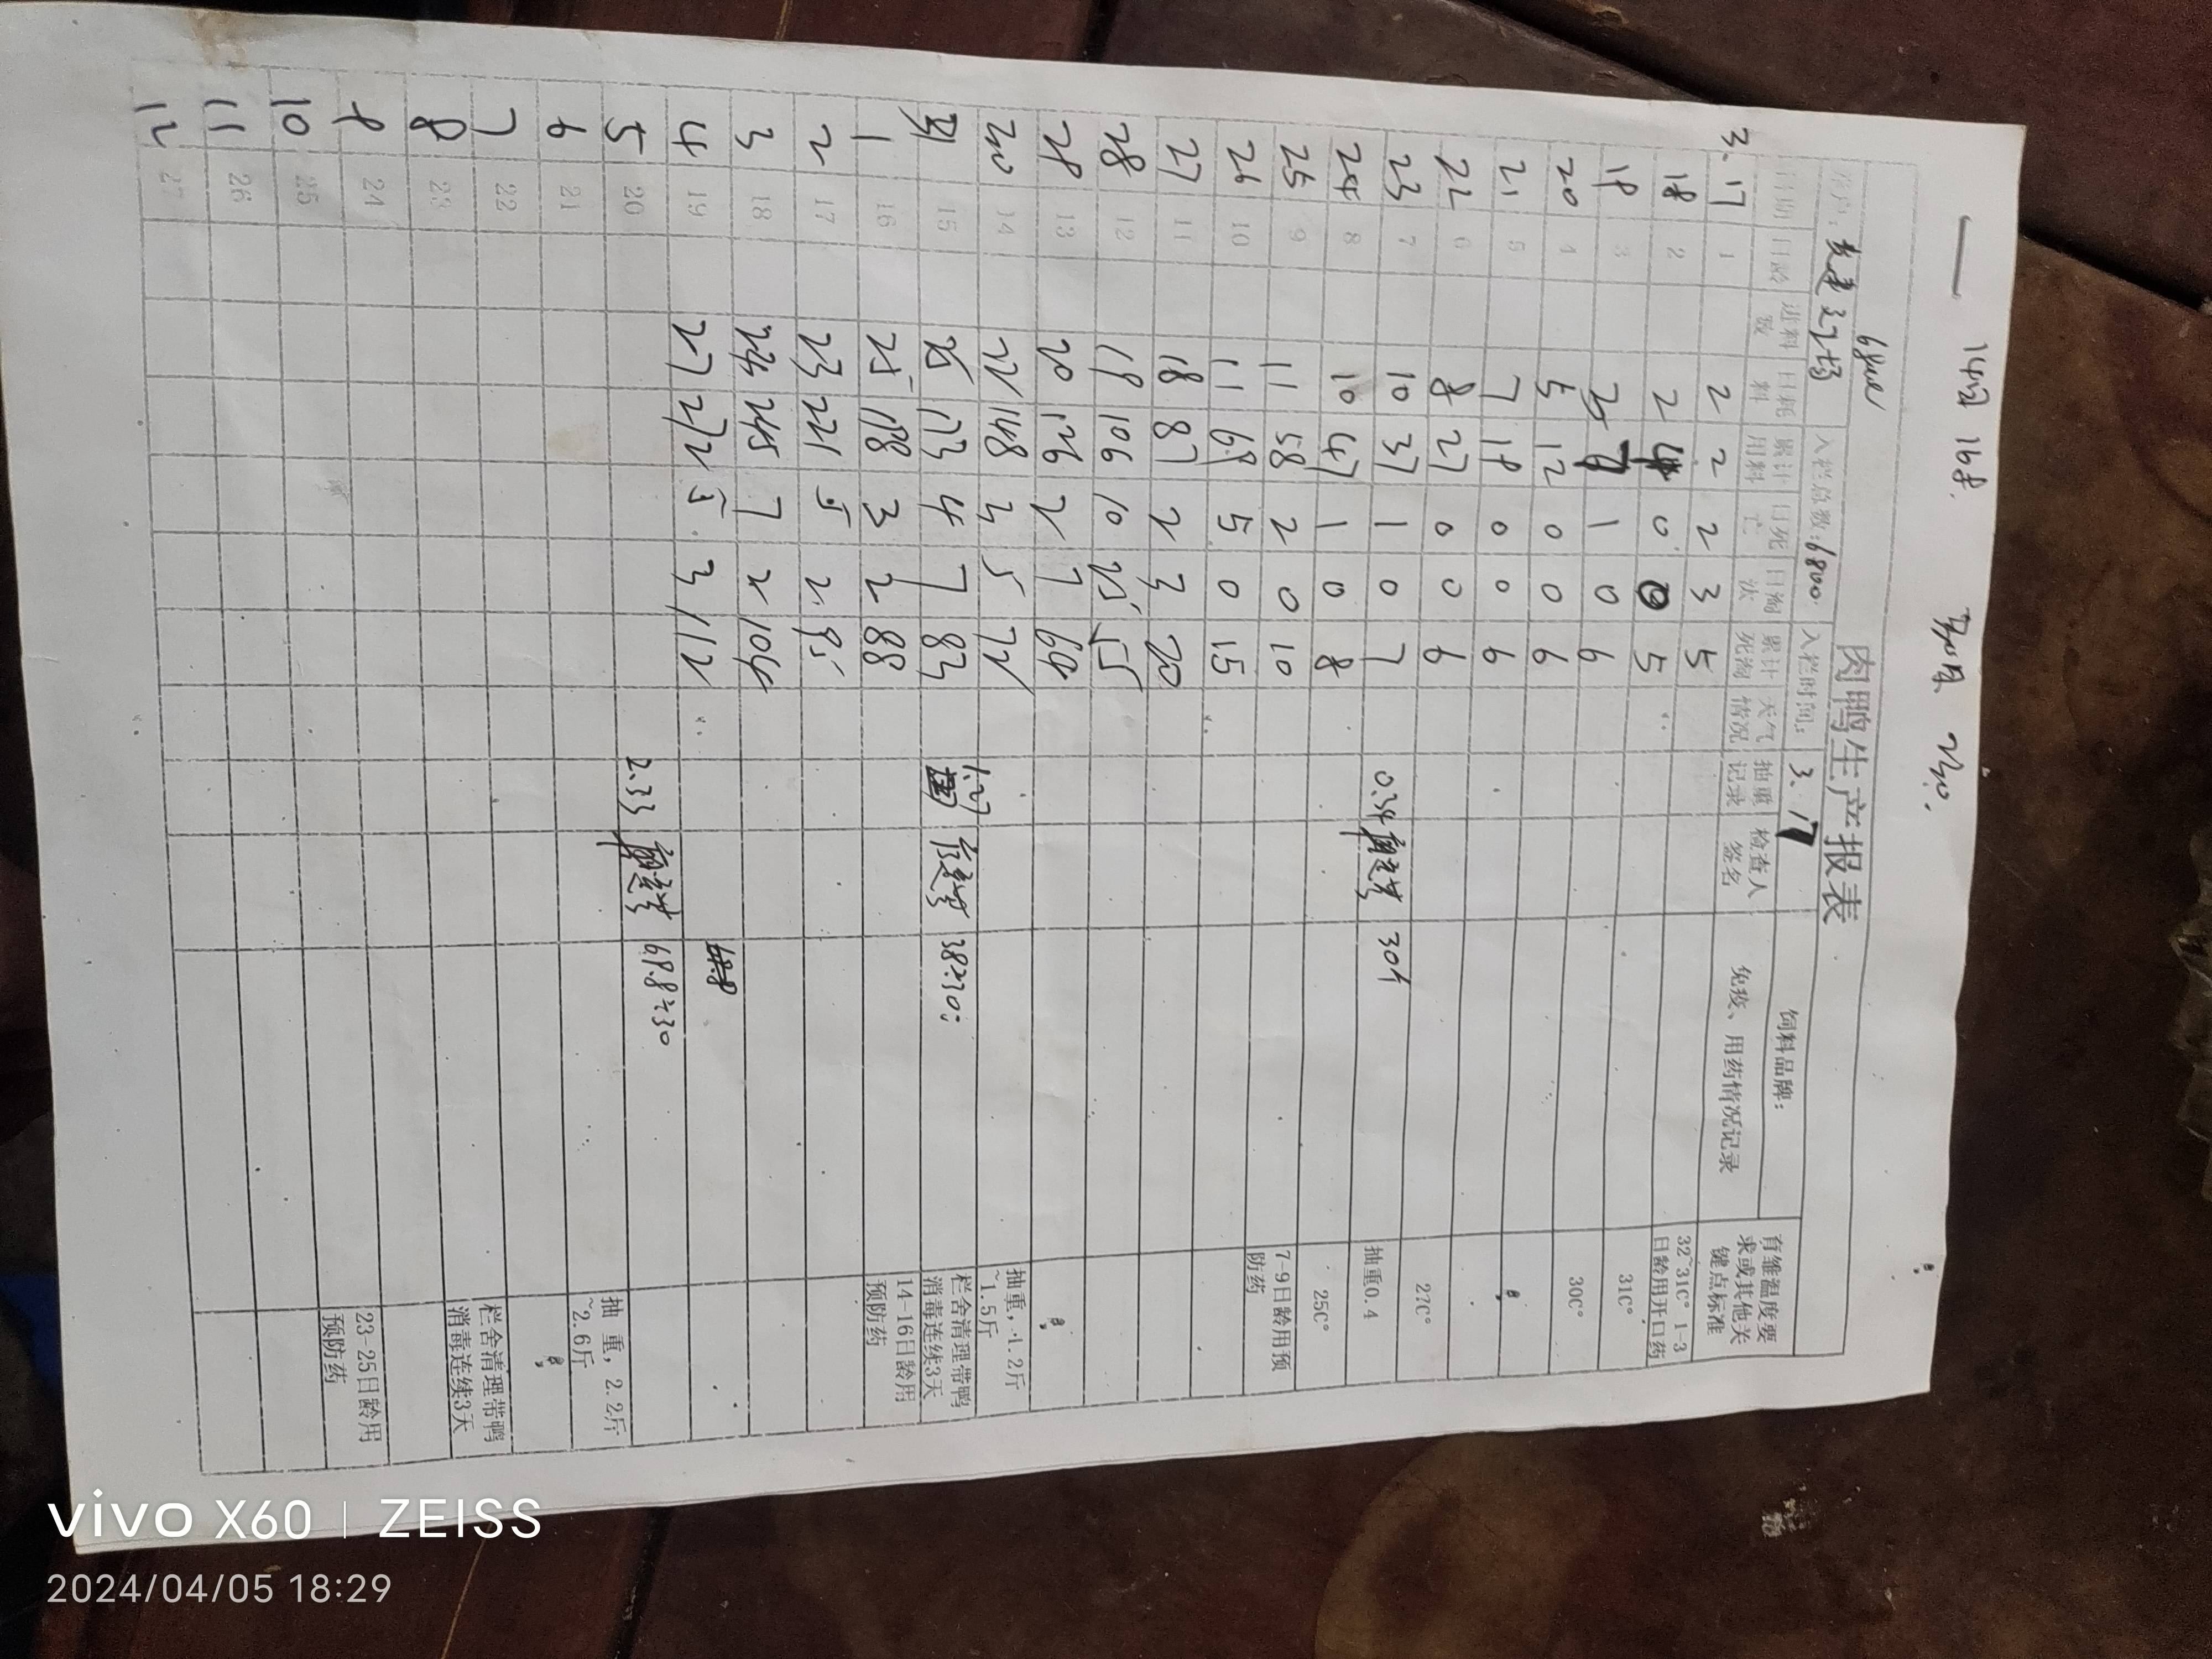 一 14包 168.
6800
肉鸭生产报表
入栏总数:6800 入栏时间: 3.17 饲料品牌:
日期 日龄 进料数 日耗料 累计用料 日死亡 日淘汰 累计死淘 天气情况 抽重记录 检查人签名 免疫、用药情况记录 育雏温度要求或其他关键点标准
3.17 1 2 2 2 3 5 32~31C° 1-3日龄用开口药
18 2 2 4 0 0 5
19 3 7 1 0 6 31C°
20 4 5 12 0 0 6 30C°
21 5 7 19 0 0 6
22 6 8 27 0 0 6 27C°
23 7 10 37 1 0 7 0.34 抽重0.4
24 8 10 47 1 0 8 25C°
25 9 11 58 2 0 10 7-9日龄用预防药
26 10 11 69 5 0 15
27 11 18 87 2 3 20
28 12 19 106 10 25 55
29 13 20 126 2 7 64
30 14 22 148 3 5 72 1.27 抽重,1.2斤~1.5斤
31 15 25 173 4 7 83 38÷30= 栏舍清理带鸭消毒连续3天
1 16 25 198 3 2 88 14-16日龄用预防药
2 17 23 221 5 2 95
3 18 24 245 7 2 104
4 19 27 272 5 3 112
5 20 2.33 69.8÷30 抽重,2.2斤~2.6斤
6 21
7 22 栏舍清理带鸭消毒连续3天
8 23
9 24 23-25日龄用预防药
10 25
11 26
12 27
vivo X60 | ZEISS
2024/04/05 18:29